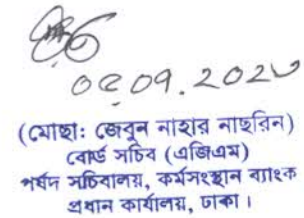 ০৫.০৭.২০২৩
(মোছা: জেবুন নাহার নাছরিন)
বোর্ড সচিব (এজিএম)
পর্ষদ সচিবালয়, কর্মসংস্থান ব্যাংক
প্রধান কার্যালয়, ঢাকা।